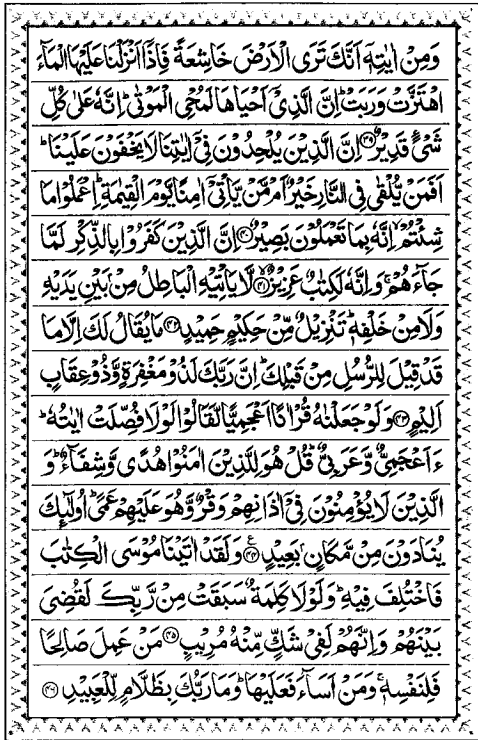 وَمِنْ اٰيٰتِهٖۤ اَنَّكَ تَرَى الْاَرْضَ خَاشِعَةً فَاِذَاۤ اَنْزَلْنَا عَلَيْهَا الْمَآءَ
اهْتَزَّتْ وَرَبَتْ ؕ اِنَّ الَّذِيْۤ اَحْيَاهَا لَمُحْيِ الْمَوْتٰى ؕ اِنَّهٗ عَلٰى كُلِّ
شَيْءٍ قَدِيْرٌ ۝۳۹ اِنَّ الَّذِيْنَ يُلْحِدُوْنَ فِيْۤ اٰيٰتِنَا لَا يَخْفَوْنَ عَلَيْنَا ؕ
اَفَمَنْ يُّلْقٰى فِي النَّارِ خَيْرٌ اَمْ مَّنْ يَّاْتِيْۤ اٰمِنًا يَّوْمَ الْقِيٰمَةِ ؕ اِعْمَلُوْا مَا
شِئْتُمْ ۙ اِنَّهٗ بِمَا تَعْمَلُوْنَ بَصِيْرٌ ۝۴۰ اِنَّ الَّذِيْنَ كَفَرُوْا بِالذِّكْرِ لَمَّا
جَآءَهُمْ ۚ وَاِنَّهٗ لَكِتٰبٌ عَزِيْزٌ ۝۴۱ۙ لَّا يَاْتِيْهِ الْبَاطِلُ مِنْۢ بَيْنِ يَدَيْهِ
وَلَا مِنْ خَلْفِهٖ ؕ تَنْزِيْلٌ مِّنْ حَكِيْمٍ حَمِيْدٍ ۝۴۲ مَا يُقَالُ لَكَ اِلَّا مَا
قَدْ قِيْلَ لِلرُّسُلِ مِنْ قَبْلِكَ ؕ اِنَّ رَبَّكَ لَذُوْ مَغْفِرَةٍ وَّذُوْ عِقَابٍ
اَلِيْمٍ ۝۴۳ وَلَوْ جَعَلْنٰهُ قُرْاٰنًا اَعْجَمِيًّا لَّقَالُوْا لَوْلَا فُصِّلَتْ اٰيٰتُهٗ ؕ
ءَاَعْجَمِيٌّ وَّعَرَبِيٌّ ؕ قُلْ هُوَ لِلَّذِيْنَ اٰمَنُوْا هُدًى وَّشِفَآءٌ ؕ وَ
الَّذِيْنَ لَا يُؤْمِنُوْنَ فِيْۤ اٰذَانِهِمْ وَقْرٌ وَّهُوَ عَلَيْهِمْ عَمًى ؕ اُولٰٓئِكَ
يُنَادَوْنَ مِنْ مَّكَانٍۭ بَعِيْدٍ ۝۴۴ۧ وَلَقَدْ اٰتَيْنَا مُوْسَى الْكِتٰبَ
فَاخْتُلِفَ فِيْهِ ؕ وَلَوْلَا كَلِمَةٌ سَبَقَتْ مِنْ رَّبِّكَ لَقُضِيَ
بَيْنَهُمْ ؕ وَاِنَّهُمْ لَفِيْ شَكٍّ مِّنْهُ مُرِيْبٍ ۝۴۵ مَنْ عَمِلَ صَالِحًا
فَلِنَفْسِهٖ ۚ وَمَنْ اَسَآءَ فَعَلَيْهَا ؕ وَمَا رَبُّكَ بِظَلَّامٍ لِّلْعَبِيْدِ ۝۴۶